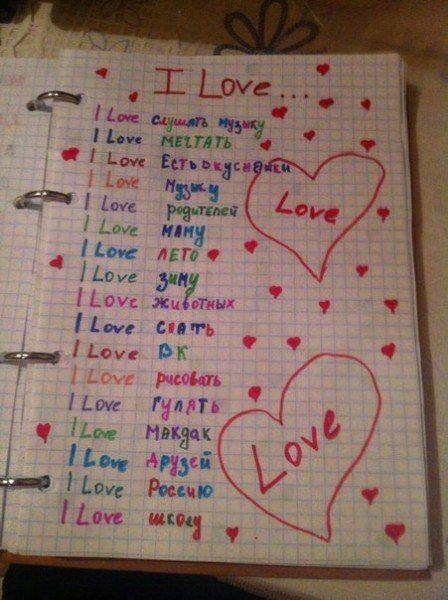 I Love...
I Love слушать музыку
I Love мечтать
I Love Есть вкусняшки
I Love Музыку
I Love родителей
I Love маму
I Love лето
I Love зиму
I Love животных
I Love спать
I Love ВК
I Love рисовать
I Love гулять
I Love МАКДАК
I Love друзей
I Love Россию
I Love школу
Love
Love